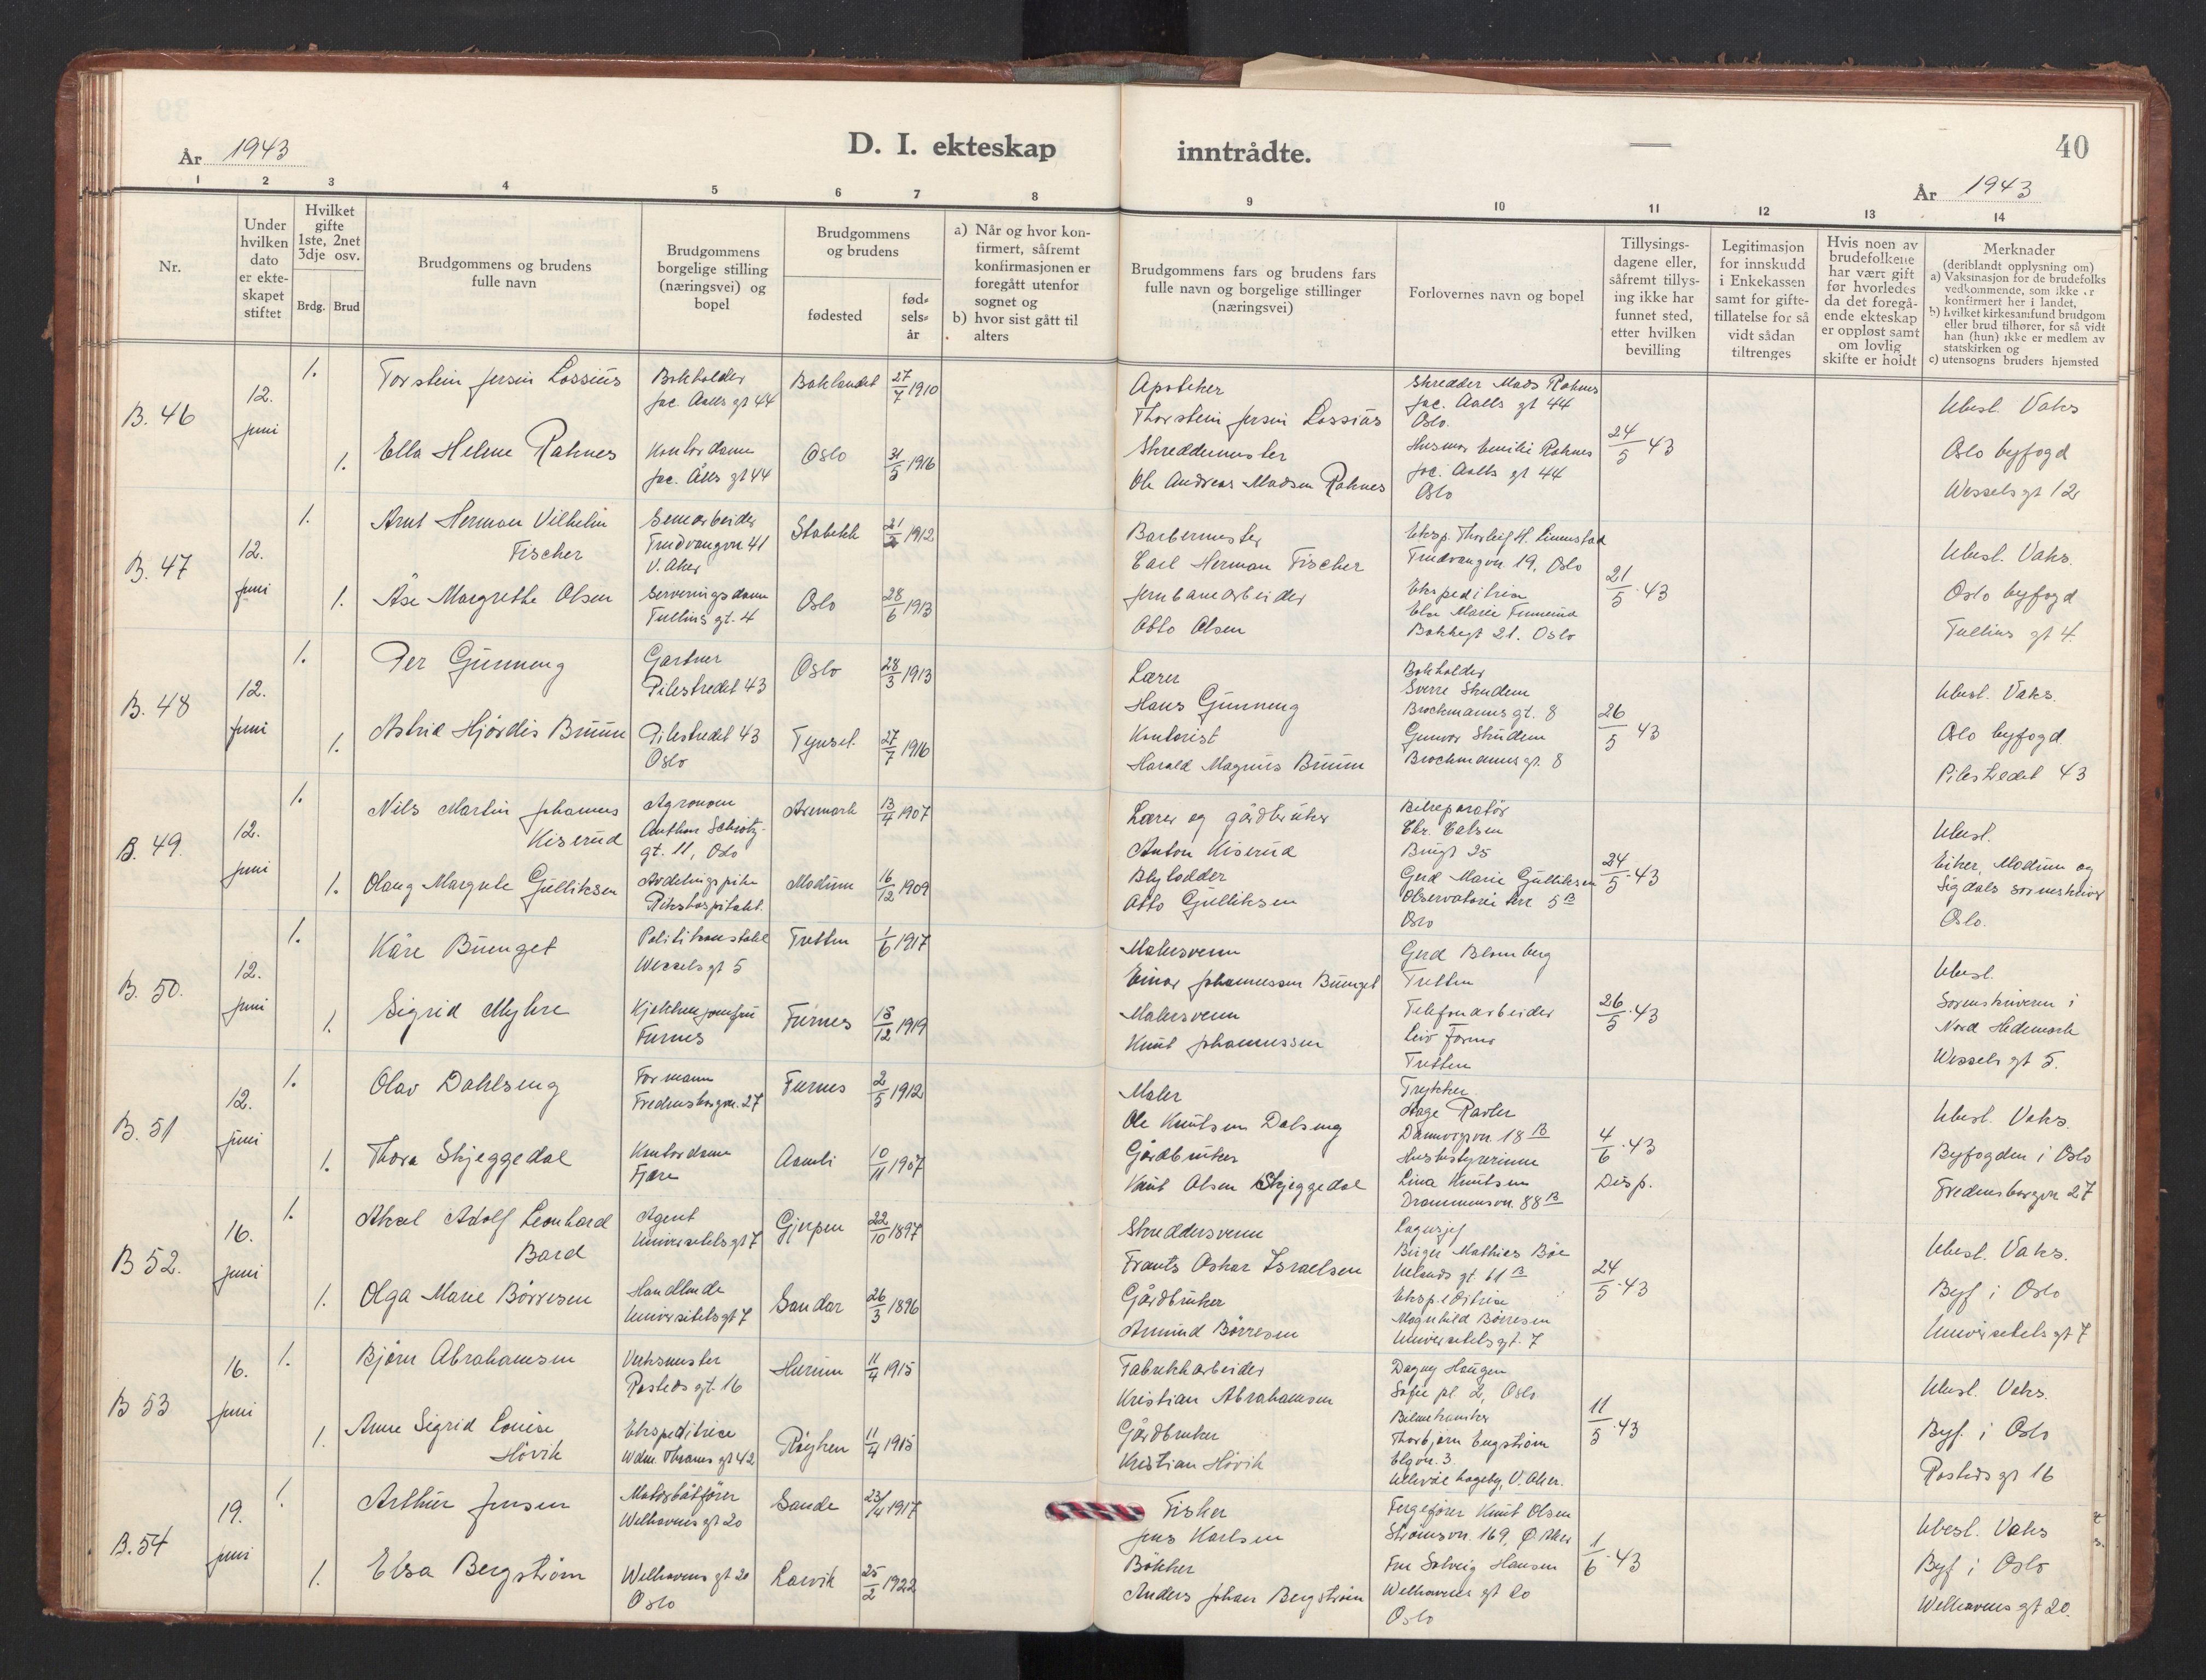 D. I. ekteskap inntrådte.
40
År 1943
År 1943
1 2 3 4 5 6 7 8 9 10 11 12 13 14
Nr.
Under
hvilken
dato
er ekte-
skapet
stiftet
Hvilket
gifte
1ste, 2net
3dje osv.
Brdg. Brud
Brudgommens og brudens
fulle navn
Brudgommens
borgelige stilling
(næringsvei) og
bopel
Brudgommens
og brudens
fødested
fød-
sels-
år
a) Når og hvor kon-
firmert, såfremt
konfirmasjonen er
foregått utenfor
sognet og
b) hvor sist gått til
alters
Brudgommens fars og brudens fars
fulle navn og borgelige stillinger
(næringsvei)
Forlovernes navn og bopel
Tillysings-
dagene eller,
såfremt tillys-
ing ikke har
funnet sted,
etter hvilken
bevilling
Legitimasjon
for innskudd
i Enkekassen
samt for gifte-
tillatelse for så
vidt sådan
tiltrenges
Hvis noen av
brudefolkene
har vært gift
før hvorledes
da det foregå-
ende ekteskap
er oppløst samt
om lovlig
skifte er holdt
Merknader
(deriblandt opplysning om)
a) Vaksinasjon for de brudefolks
vedkommende, som ikke er
konfirmert her i landet,
b) hvilket kirkesamfund brudgom
eller brud tilhører, for så vidt
han (hun) ikke er medlem av
statskirken og
c) utensogns bruders hjemsted
B. 46
12.
juni
1.
Torstein Jersin Lossius
Bokholder
Jac. Aalls gt 44
Boklandet
27/7 1910
Apoteker
Thorstein Jersin Lossius
Skredder Mads Rahnes
Jac. Aalls gt 44
Oslo.
1.
Ella Helene Rahnes
Kontordame
Jac. Ålls gt 44
Oslo
31/5 1916
Skreddermester
Ole Andreas Madsen Rahnes
Husmor Emilie Rahnes
Jac. Aalls gt 44
Oslo
24/5 43
Ubesl. Vaks
Oslo byfogd
Wessels gt 12
B. 47
12.
juni
1.
Arnt Herman Vilhelm
Fischer
Trudvangvn 41
V. Aker
Stabekk
21/2 1912
Barbermester
Carl Herman Fischer
Eksp. Thorleif H. Linnestad
Trudvangvn 19, Oslo
1.
Åse Margrethe Olsen
Serveringsdame
Tullins gt. 4
Oslo
28/6 1913
Jernbanearbeider
Otto Olsen
Ekspeditrise
Else Marie
Bakkegt 21. Oslo
21/5 43
Ubesl. Vaks.
Oslo byfogd
Tullins gt 4.
B. 48
12.
juni
1.
Per Gunneng
Gartner
Pilestredet 43
Oslo
28/3 1913
Lærer
Hans Gunneng
Bokholder
Sverre Skudem
Brochmanns gt. 8
1.
Astrid Hjørdis Bruun
Pilestredet 43
Oslo
Tynset.
27/7 1916
Kontorist
Harald Magnus Bruun
Gunvor Skudem
Brochmanns gt. 8
26/5 43
Ubesl. Vaks.
Oslo byfogd.
Pilestredet 43
B. 49.
12.
juni
1.
Nils Martin Johannes
Kiserud
Agronom
Anthon Schiøtz-
gt. 11, Oslo
Aremark
13/4 1907
Lærer og gårdbruker
Anton Kiserud
Bilreparatør
Chr. Carlsen
25
1.
Olaug Margrete Gulliksen
Avdelingspike
Rikshospitalet.
Modum
16/12 1909
Otto Gulliksen
Gerd Marie Gulliksen
Observatorie terr 5 B
Oslo
24/5 43
Ubesl.
Eiker, Modum og
Sigdals sorenskriver
Oslo.
B. 50.
12.
juni
1.
Kåre Bunget
Politikonstabel
Wessels gt 5
Tretten
1/6 1917
Malersvenn
Einar Johannessen Bunget
Gerd Blomberg
Tretten
1.
Sigrid Myhre
Kjøkkenjomfru
Furnes
Furnes
18/12 1919
Malersvenn
Knut Johannessen
Telefonarbeider
Leiv Formo
Tretten
26/5 43
Ubesl.
Sorenskriveren i
Nord Hedemark
Wessels gt 5.
B. 51
12.
juni
1.
Olav Dahlseng
Formann
Fredensborgvn. 27
Furnes
2/5 1912
Maler
Ole Knutsen Dalseng
Trykker
Dannevigsvn. 18 B
1.
Thora Skjeggedal
Kontordame
Fjære
Aamli
10/11 1907
Gårdbruker
Knut Olsen Skjeggedal
Husbestyrerinne
Lina Knutsen
Drammensvn. 88 B
4/6 43
Disp.
Ubesl. Vaks.
Byfogden i Oslo
Fredensborgvn 27
B 52.
16.
juni
1.
Aksel Adolf Leonhard
Bard
Agent
Universitets gt 7
Gjerpen
22/10 1897
Skreddersvenn
Frants Oskar Israelsen
Lagersjef
Birger Mathias Bøe
Uelands gt. 61 B
1.
Olga Marie Børresen
Handlende
Universitets gt 7
Sandar
26/3 1896
Gårdbruker
Amund Børresen
Ekspeditrise
Magnhild Børresen
Universitets gt. 7
24/5 43
Ubesl. Vaks.
Byf i Oslo
Universitets gt 7
B 53
16.
juni
1.
Bjørn Abrahamsen
Verksmester
Rosteds gt. 16
Hurum
11/4 1915
Fabrikkarbeider
Kristian Abrahamsen
Dagny Haugen
Sofie pl. 2, Oslo
1.
Anne Sigrid Louise
Høvik
Ekspeditrise
Wdm. Thranes gt 42
Røyken
11/4 1915
Gårdbruker
Kristian Høvik
Bilmekaniker
Thorbjørn Engstrøm
Elgvn. 3.
Ullevåe hageby, V. Aker.
11/5 43
Ubesl. Vaks.
Byf. i Oslo
Rosteds gt 16
B. 54
19.
juni
1.
Arthur Jensen
Motorbåtfører
Welhavens gt 20
Sande
23/4 1917
Fisker
Jens Karlsen
Fergefører Knut Olsen
Strømsvn. 169, Ø. Aker
1.
Elsa Bergstrøm
Welhavens gt 20
Oslo
Larvik
25/2 1922
Bøkker
Anders Johan Bergstrøm
Fru Solveig Hansen
Welhavens gt 20
Oslo
1/6 43
Ubesl. Vaks
Byf i Oslo
Welhavens gt 20.